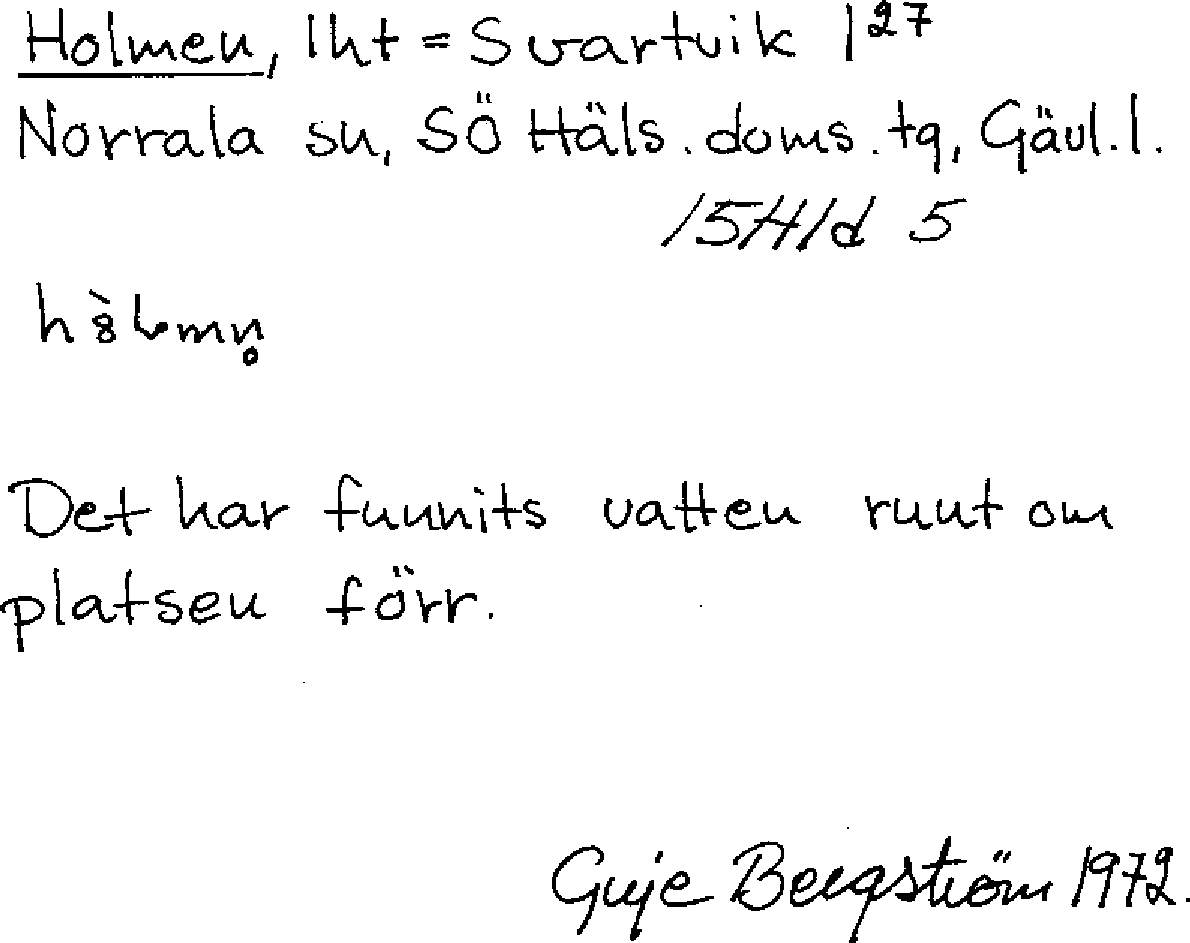 Holmen, lht = Svartvik 1²⁷
Norrala sn, SÖ Häls. doms. tg, Gävl. l.
15H1d 5
Det har funnits vatten runt om
platsen förr.
Guje Bergström 1972.